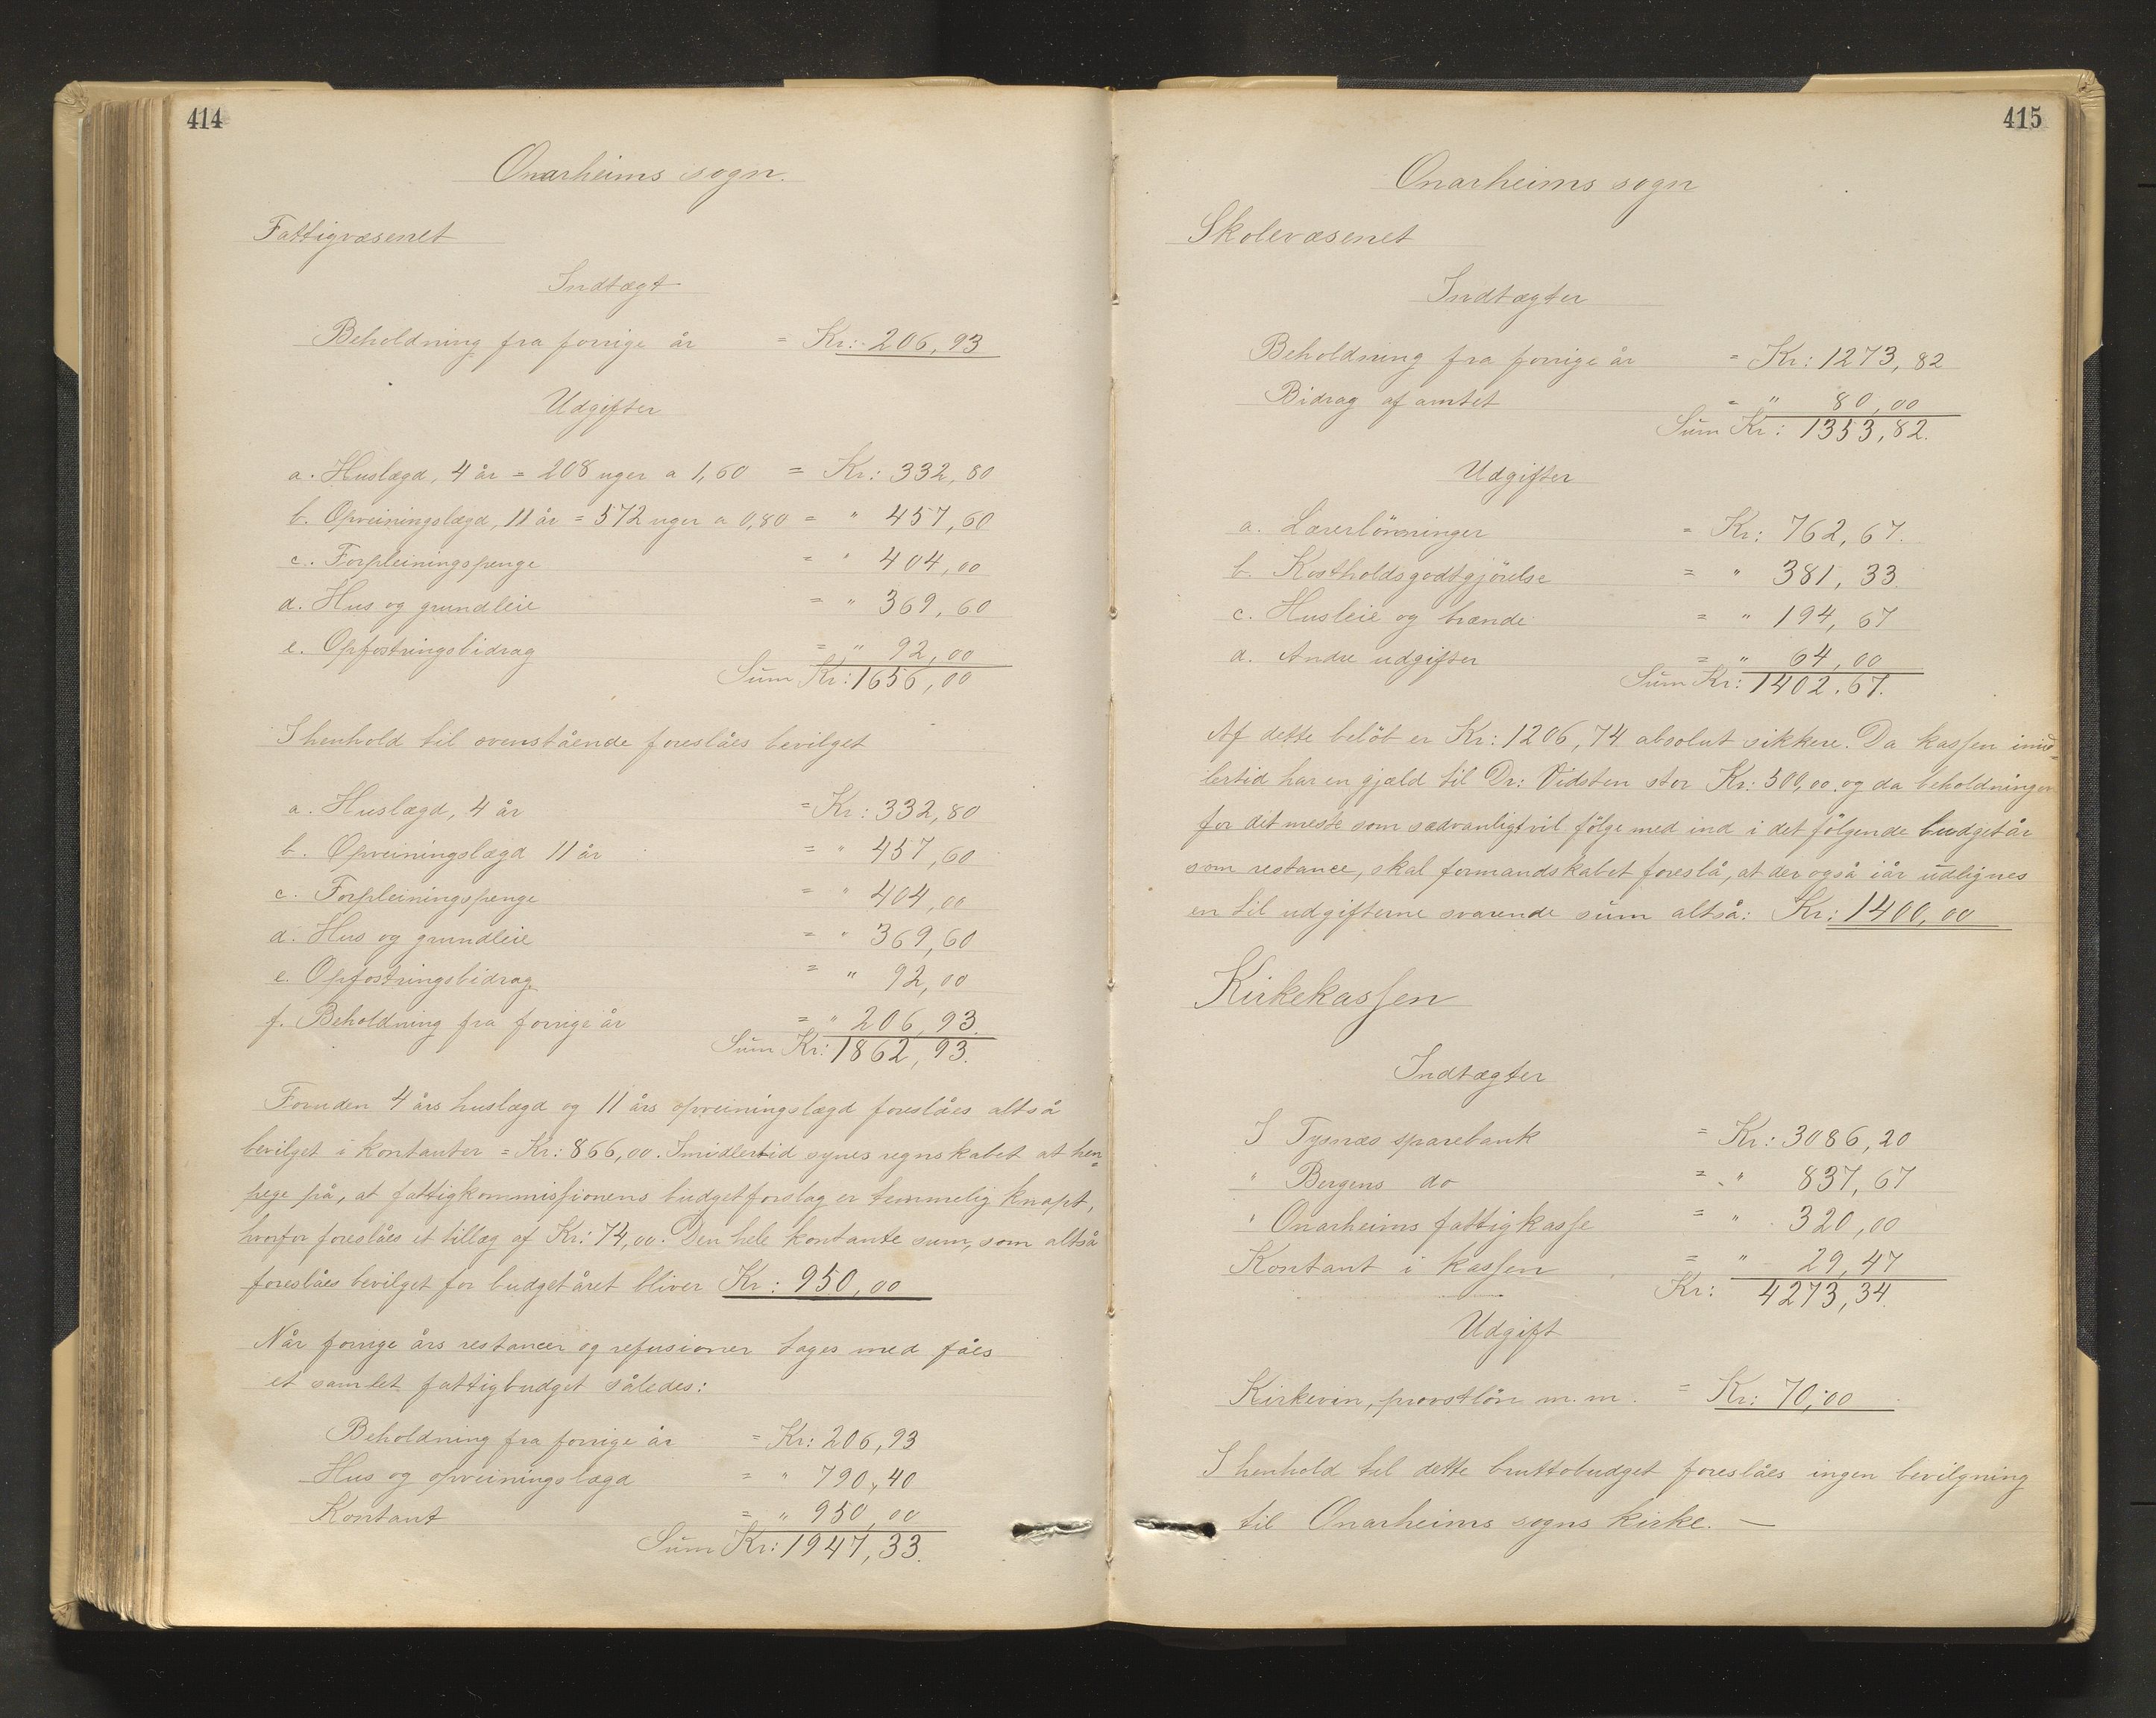 414
Onarheims sogn.
Fattigvæsenet
Indtægt
Beholdning fra forrige år = Kr: 206,93
Udgifter
a. Huslægd, 4 år = 208 uger a 1,60 = Kr: 332,80
b. Opreiningslægd, 11 år = 572 uger a 0,80 = " 457,60
c. Forpleiningspenge = " 404,00
d. Hus og grundleie = " 369,60
e. Opfostringsbidrag = " 92,00
Sum Kr: 1656,00
I henhold til ovenstående foreslåes bevilget
a. Huslægd, 4 år = Kr: 332,80
b. Opreiningslægd 11 år = " 457,60
c. Forpleiningspenge = " 404,00
d. Hus og grundleie = " 369,60
e. Opfostringsbidrag = " 92,00
f. Beholdning fra forrige år = " 206,93
Sum Kr: 1862,93.
Foruden 4 års huslægd og 11 års opreiningslægd foreslåes altså
bevilget i kontanter = Kr: 866,00. Imidlertid synes regnskabet at hen=
pege på, at fattigkommissionens budgetforslag er temmelig knapt,
hvorfor foreslåes et tillæg af Kr: 74,00. Den hele kontante sum, som altså
foreslåes bevilget for budgetåret bliver Kr: 950,00
Når forrige års restancer og refusioner tages med fåes
et samlet fattigbudget således:
Beholdning fra forrige år = Kr: 206,93
Hus og opreiningslægd = " 790,40
Kontant = " 950,00
Sum Kr: 1947,33.
415
Onarheims sogn
Skolevæsenet
Indtægter
Beholdning fra forrige år = Kr: 1273,82
Bidrag af amtet = " 80,00
Sum Kr: 1353,82.
Udgifter
a. Lærerlönninger = Kr: 762,67.
b. Kostholdsgodtgjörelse = " 381,33.
c. Husleie og brænde = " 194,67
d. Andre udgifter = " 64,00
Sum Kr: 1402,67.
Af dette belöb er Kr: 1206,74 absolut sikkere. Da kassen imid=
lertid har en gjæld til Dr: Vidsten stor Kr: 500,00 og da beholdningen
for det meste som sædvanligt vil fölge med ind i det fölgende budgetår
som restance, skal formandskabet foreslå, at der også iår udlignes
en til udgifterne svarende sum altså: Kr: 1400,00
Kirkekassen
Indtægter
I Tysnæs sparebank = Kr: 3086,20
" Bergens do = " 837,67
" Onarheims fattigkasse = " 320,00
Kontant i kassen = " 29,47
Kr: 4273,34.
Udgift
Kirkevin, provstlön m. m. = Kr: 70,00
I henhold til dette bruttobudget foreslåes ingen bevilgning
til Onarheims sogns kirke. —